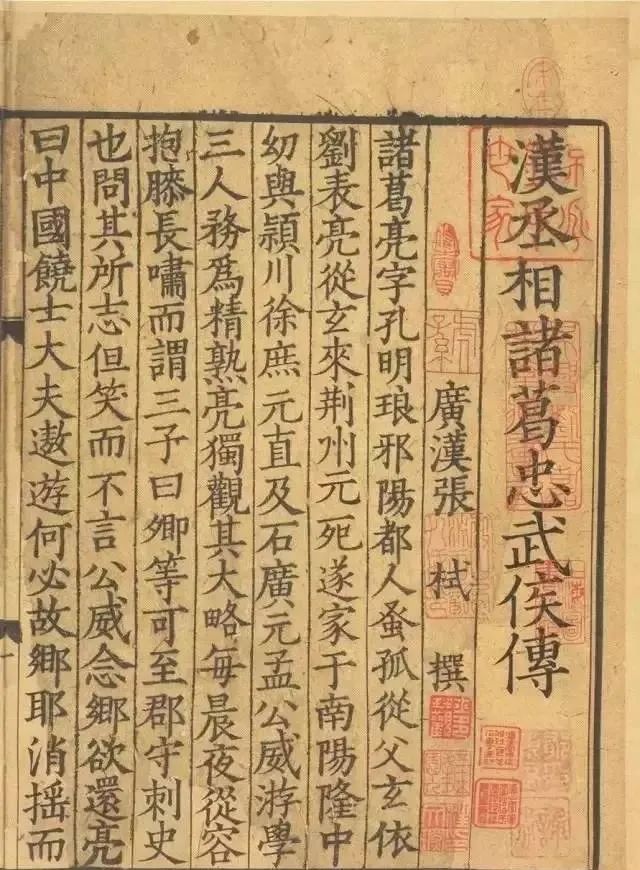 漢丞相諸葛忠武侯傳
廣漢張 栻 撰
諸葛亮字孔明琅邪陽都人蚤孤從父玄依
劉表亮從玄來荆州元死遂家于南陽隆中
幼與潁川徐庶元直及石廣元孟公威游學
三人務爲精熟亮獨觀其大略每晨夜從容
抱膝長嘯而謂三子曰卿等可至郡守刺史
也問其所志但笑而不言公威念鄉欲還亮
曰中國饒士大夫遨遊何必故鄉耶消摇而